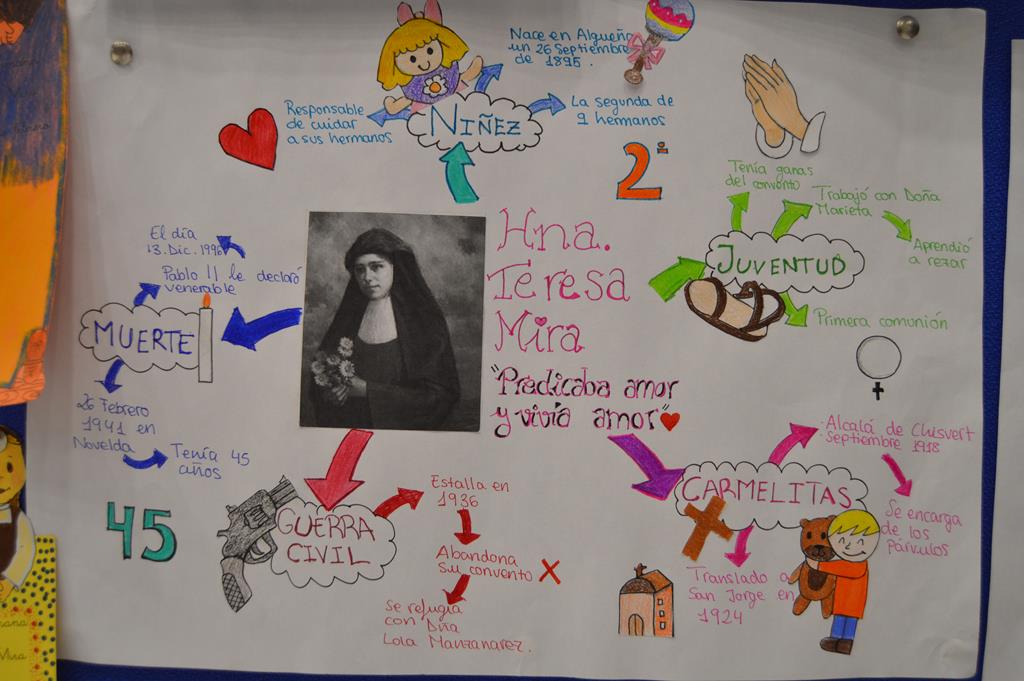 Nace en Algueña
un 26 Septiembre
de 1895.
Responsable
de cuidar
a sus hermanos
NIÑEZ
La segunda de
9 hermanos
2ª
Hna.
Teresa
Mira
"Predicaba amor
y vivía amor"
Tenía ganas
del convento
Trabajó con Doña
Marieta
Aprendió
a rezar
JUVENTUD
Primera comunión
El día
13. Dic. 1996
Pablo II le declaró
venerable
MUERTE
26 Febrero
1941 en
Novelda
Tenía 45
años
45
GUERRA
CIVIL
Estalla en
1936
Abandona
su convento
Se refugia
con Dña
Lola Manzanarez.
CARMELITAS
Alcalá de Chisvert
Septiembre 1918
Se encarga
de los
Párvulos
Translado a
San Jorge en
1924
Mira